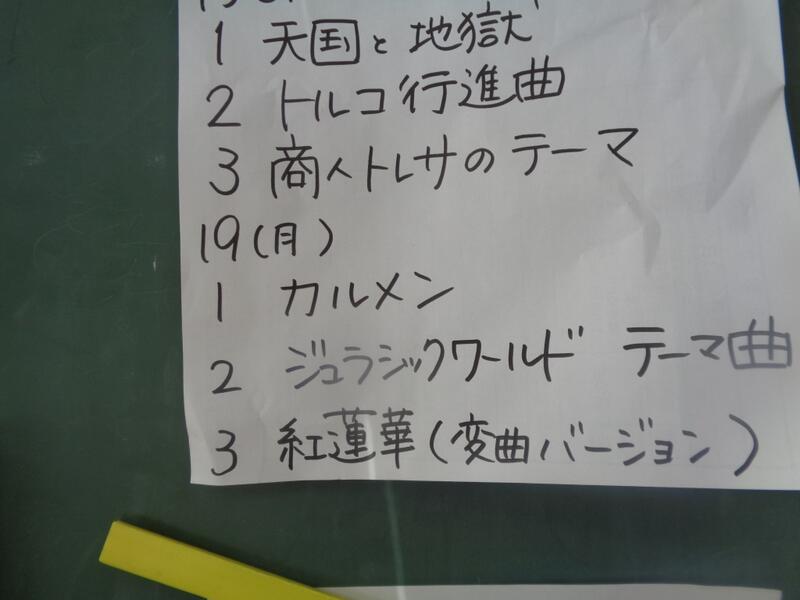 1 天国と地獄
2 トルコ行進曲
3 商人トレサのテーマ
19(月)
1 カルメン
2 ジュラシックワールド テーマ曲
3 紅蓮華(変曲バージョン)